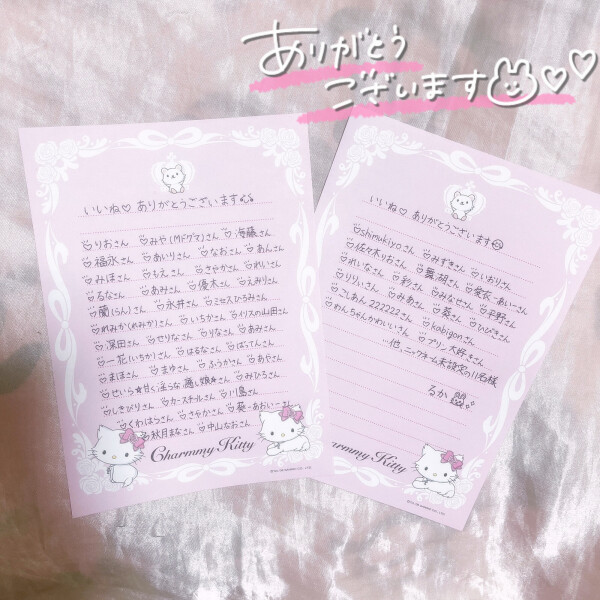 ありがとう
ございます
いいね♡ ありがとうございます
りおさん みや(Mドグマ)さん 海藤さん
福永さん あいりさん なおさん あんさん
みほさん もえさん さやかさん れいさん
るなさん あみさん 優木さん えみりさん
蘭(らん)さん 永井さん ミセスひろみさん
れみか(れみか)さん いちかさん イリスの山田さん
深田さん せりなさん りなさん あみさん
一花(いちか)さん はるなさん ばってんさん
まほさん まゆさん ふうかさん あやさん
せいら★甘く淫らな癒し娘★さん みひろさん
しきびりさん カースティルさん 川島さん
くわはらさん さやかさん 葵-あおいーさん
秋月まなさん 中山なおさん
Charmmy Kitty
いいね♡ ありがとうございます
shimukiyoさん みずきさん いおりさん
佐々木りおさん 舞胡さん 愛衣-あいーさん
れいなさん 彩さん みなせさん 平野さん
りりぃさん みあさん 葵さん ひびきさん
こしあん222222さん kobigonさん
めんちゃんかわいいさん プリン大好きさん
…他、ニックネーム未設定の11名様
るか
Charmmy Kitty